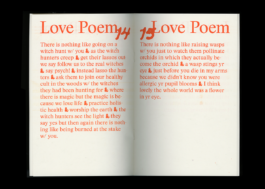 Love Poem 14
There is nothing like going on a
witch hunt w/ you & as the witch
hunters creep & get their hands on
we say follow us to the real witches
& our psych! & instead have the hun
ters & ask them to join our healthy
cult in the woods or the witches
they had been hunting for & where
there is magic but the magic is be
cause we love life & practice holis
tic health & worship the earth & the
witch hunters see the light & they
say yes but then again there is noth
ing like being burned at the stake
w/ you.
15 Love Poem
There is nothing like raising wasps
w/ you just to watch them pollinate
orchids in which they actually be
come the orchid & a wasp stings yr
eye & just before you die in my arms
because we didn't know you were
allergic yr pupil blooms & I think
lovely the whole world was a flower
in yr eye.